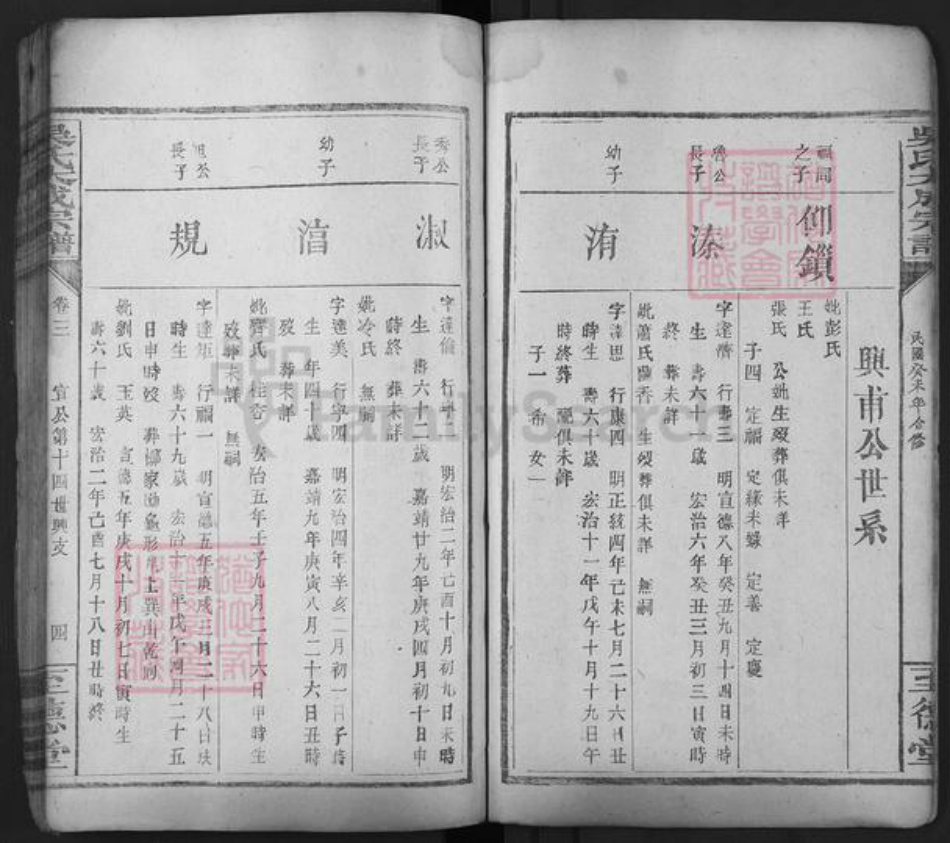 吳氏大成宗譜
民國癸未年合修
三德堂
興甫公世系
福同之子
仰鎖
妣彭氏
王氏
張氏 公妣生歿葬俱未詳
子四 定福 定緣未娶 定善 定慶
魯公長子
溱
字達濟 行壽三 明宣德八年癸丑九月十四日未時
生 壽六十一歲 宏治六年癸丑三月初三日寅時
終 葬未詳
妣蕭氏蘭香 生歿葬俱未詳 無嗣
幼子
洧
字達思 行康四 明正統四年己未七月二十六日丑
時生 壽六十歲 宏治十一年戊午十月十九日午
時終葬 俱未詳
子一 希 女一
秀公長子
淑
字達倫 行 明宏治二年己酉十月初九日未時
生 壽六十二歲 嘉靖廿九年庚戌四月初十日申
時終 葬未詳
妣冷氏 無嗣
幼子
湻
字達美 行寧四 明宏治四年辛亥二月初一日子時
生 年四十歲 嘉靖九年庚寅八月二十六日丑時
歿 葬未詳
妣齊氏 桂杏 宏治五年壬子九月二十六日申時生
歿葬未詳 無嗣
旭公長子
規
字達矩 行福一 明宣德五年庚戌三月二十八日戌
時生 壽六十九歲 宏治十一年戊午四月二十五
日申時歿 葬 家 龜形 上巽山乾向
妣劉氏 玉英 宣德五年庚戌十月初七日寅時生
壽六十歲 宏治二年己酉七月十八日丑時終
吳氏大成宗譜
卷三 宜公第十四世興支 四
三德堂
FamilySearch